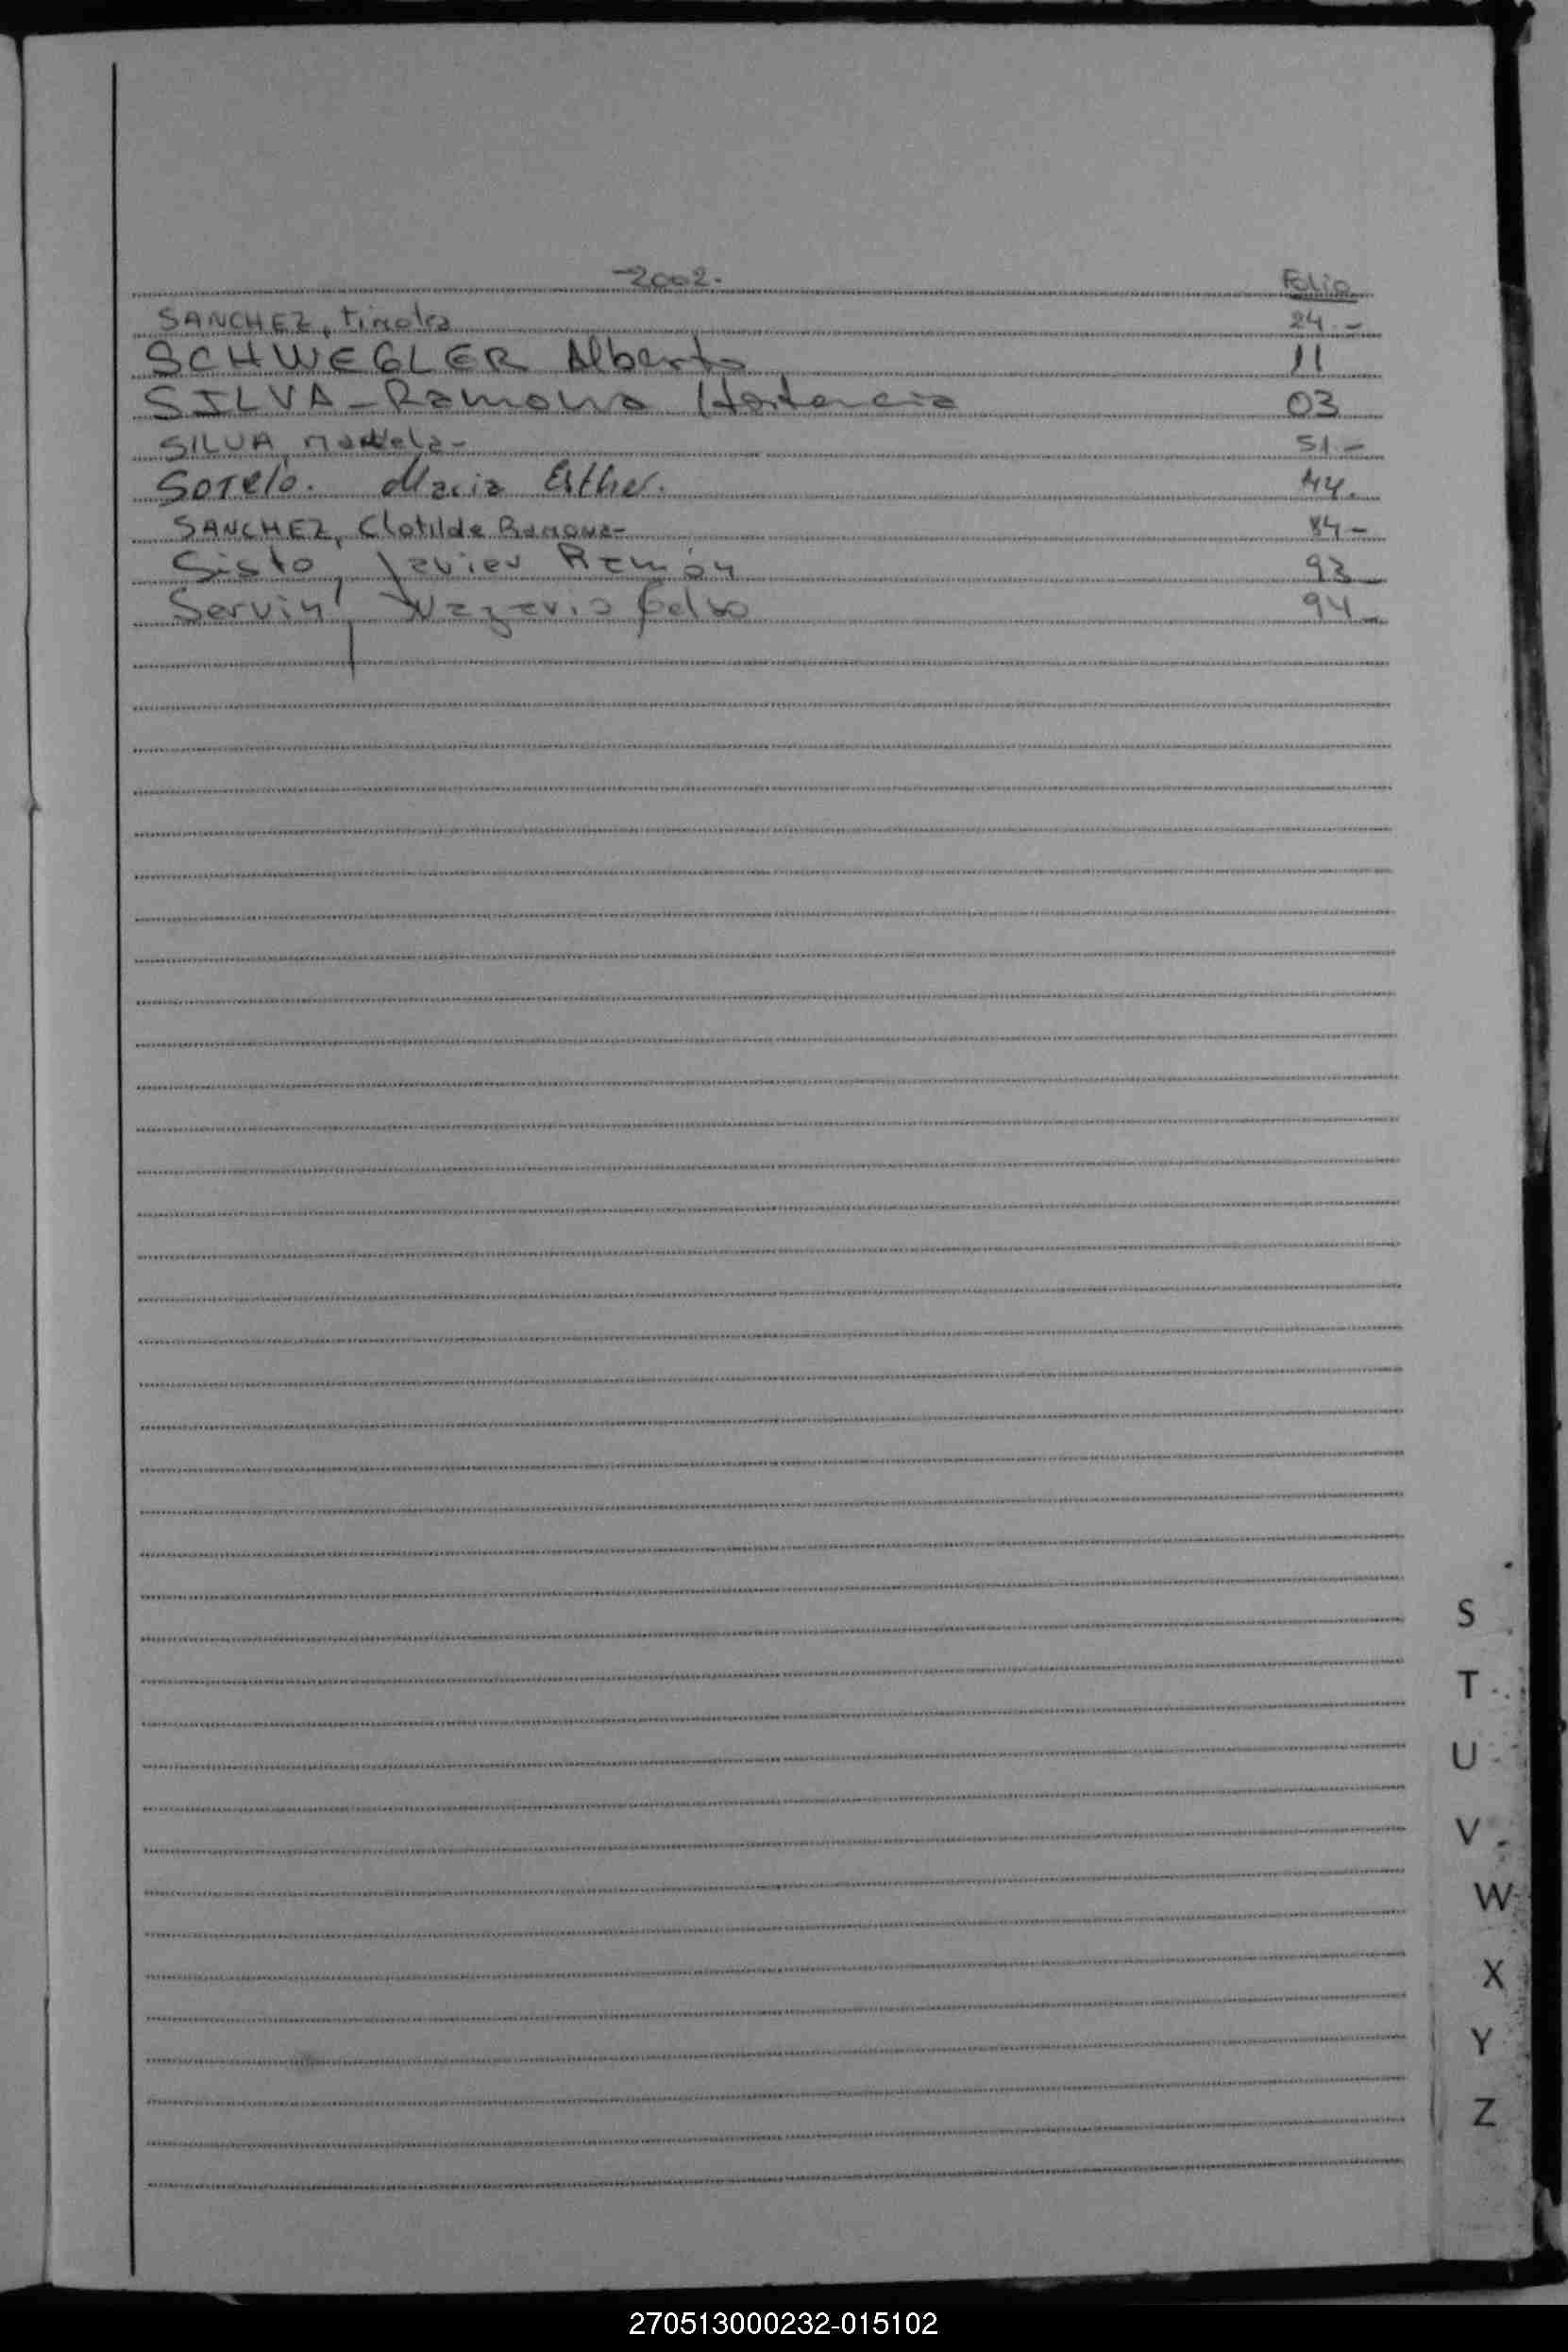 -2002- Folio
SANCHEZ, 24.-
SCHWEGLER Alberto 11
SILVA - Ramona Hortencia 03
SILVA, 51.-
Sotelo. Maria Esther. 44.
SANCHEZ, Clotilde Ramona- 84-
Sisto, Javier Ramón 93
Servin, Nazario Celso 94
S
T
U
V
W
X
Y
Z
270513000232-015102